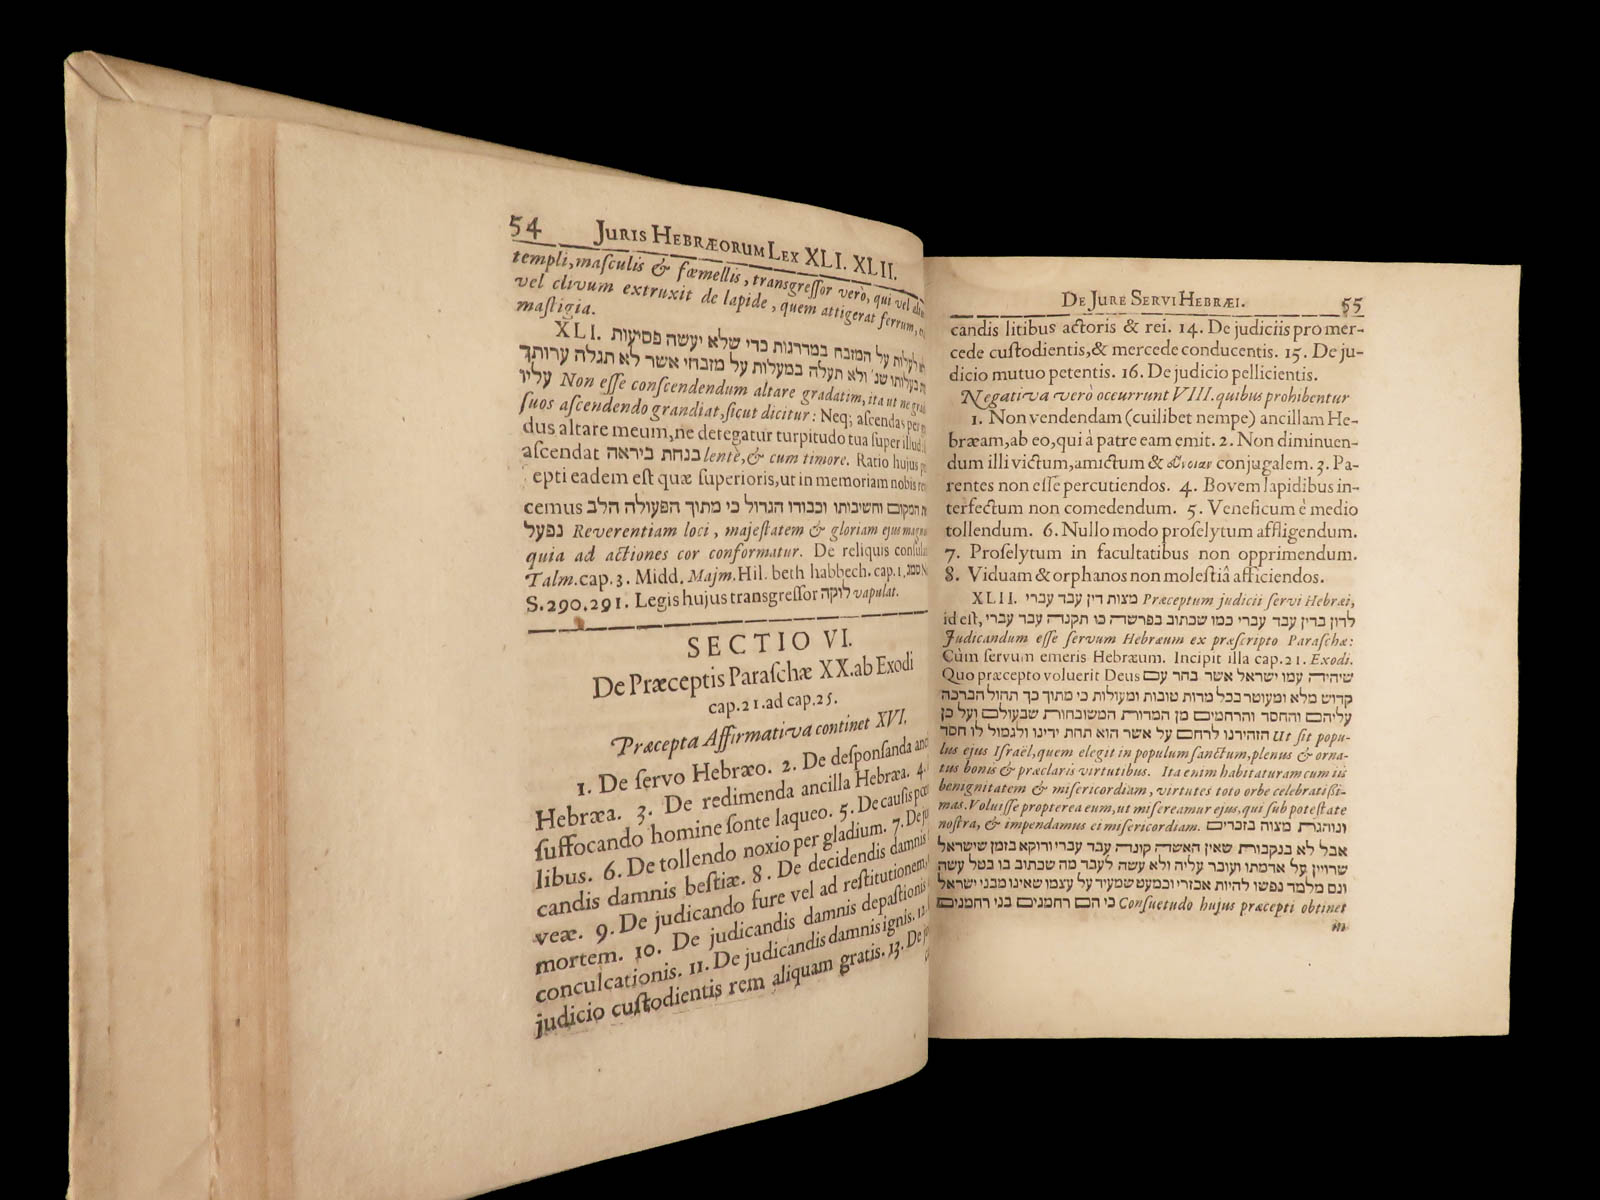 54 JURIS HEBRÆORUM LEX XLI. XLII.
templi, maſculis & fœmellis, transgreſſor verò, qui vel
vel clivum extruxit de lapide, quem attigerat ferrum,
maſtigia.
XLI. לעלות על המזבח במדרגות כדי שלא יעשה פסיעות
בעלותו שנ׳ ולא תעלה במעלות על מזבחי אשר לא תגלה ערותך
עליו Non eſſe conſcendendum altare gradatim, ita ut ne
ſuos aſcendendo grandiat, ſicut dicitur: Neq; aſcendas per
dus altare meum, ne detegatur turpitudo tua ſuper illud
aſcendat בנחת ביראה lentè, & cum timore. Ratio hujus
epti eadem eſt quæ ſuperioris, ut in memoriam nobis
cemus המקום וחשיבותו וכבודו הגדול כי מתוך הפעולה הלב
נפעל Reverentiam loci, majeſtatem & gloriam ejus
quia ad actiones cor conformatur. De reliquis
Talm. cap. 3. Midd. Majm. Hil. beth habbech. cap. 1. סמג
S. 290. 291. Legis hujus transgreſſor לוקה vapulat.
SECTIO VI.
De Præceptis Paraſchæ XX. ab Exodi
cap. 21. ad cap. 25.
Præcepta Affirmativa continet XVI.
1. De ſervo Hebræo. 2. De deſponſanda
Hebræa. 3. De redimenda ancilla Hebræa. 4.
ſuffocando homine ſonte laqueo. 5. De cauſis
libus. 6. De tollendo noxio per gladium. 7. De
candis damnis beſtiæ. 8. De decidendis damnis
veæ. 9. De judicando fure vel ad reſtitutionem,
mortem. 10. De judicandis damnis depaſtionis
conculcationis. 11. De judicandis damnis ignis. 12.
judicio cuſtodientis rem aliquam gratis. 13. De
DE JURE SERVI HEBRÆI. 55
candis litibus actoris & rei. 14. De judiciis pro mer-
cede cuſtodientis, & mercede conducentis. 15. De ju-
dicio mutuo petentis. 16. De judicio pellicientis.
Negativa verò occurrunt VIII. quibus prohibentur
1. Non vendendam (cuilibet nempe) ancillam He-
bræam, ab eo, qui à patre eam emit. 2. Non diminuen-
dum illi victum, amictum & conjugalem. 3. Pa-
rentes non eſſe percutiendos. 4. Bovem lapidibus in-
terfectum non comedendum. 5. Veneficum è medio
tollendum. 6. Nullo modo proſelytum affligendum.
7. Proſelytum in facultatibus non opprimendum.
8. Viduam & orphanos non moleſtiâ afficiendos.
XLII. מצות דין עבד עברי Præceptum judicii ſervi Hebræi,
id eſt, לדון בדין עבד עברי כמו שכתוב בפרשה כו תקנה עבד עברי
Judicandum eſſe ſervum Hebræum ex præſcripto Paraſchæ:
Cùm ſervum emeris Hebræum. Incipit illa cap. 21. Exodi.
Quo præcepto voluerit Deus שיהיה עמו ישראל אשר בחר עם
קדוש מלא ומעוטר בכל מדות טובות ומעולות כי מתוך כך תחול הברכה
עליהם והחסד והרחמים מן המדות המשובחות שבעולם ועל כן
הזהירנו לרחם על אשר הוא תחת ידינו ולגמול לו חסד Ut ſit popu-
lus ejus Iſraël, quem elegit in populum ſanctum, plenus & orna-
tus bonis & præclaris virtutibus. Ita enim habitaturam cum iis
benignitatem & miſericordiam, virtutes toto orbe celebratiſſi-
mas. Voluiſſe propterea eum, ut miſereamur ejus, qui ſub poteſtate
noſtra, & impendamus ei miſericordiam. ונוהגת מצוה בזכרים
אבל לא בנקבות שאין האשה קונה עבד עברי ודוקא בזמן שישראל
שרויין על אדמתו ועובר עליה ולא עשה לעבד מה שכתוב בו בטל עשה
וגם מלמד נפשו להיות אכזרי וכמעט שמעיד על עצמו שאינו מבני ישראל
כי הם רחמנים בני רחמנים Conſuetudo hujus præcepti obtinet
in